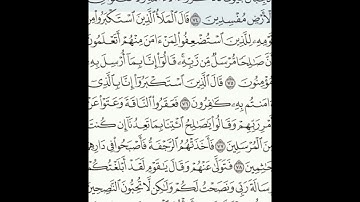 ٱلْأَرْضِ مُفْسِدِينَ ٧٤ قَالَ ٱلْمَلَأُ ٱلَّذِينَ ٱسْتَكْبَرُوا۟ مِن
قَوْمِهِۦ لِلَّذِينَ ٱسْتُضْعِفُوا۟ لِمَنْ ءَامَنَ مِنْهُمْ أَتَعْلَمُونَ
أَنَّ صَٰلِحًا مُّرْسَلٌ مِّن رَّبِّهِۦ ۚ قَالُوٓا۟ إِنَّا بِمَآ أُرْسِلَ بِهِۦ
مُؤْمِنُونَ ٧٥ قَالَ ٱلَّذِينَ ٱسْتَكْبَرُوٓا۟ إِنَّا بِٱلَّذِىٓ
ءَامَنتُم بِهِۦ كَٰفِرُونَ ٧٦ فَعَقَرُوا۟ ٱلنَّاقَةَ وَعَتَوْا۟ عَنْ
أَمْرِ رَبِّهِمْ وَقَالُوا۟ يَٰصَٰلِحُ ٱئْتِنَا بِمَا تَعِدُنَآ إِن كُنتَ
مِنَ ٱلْمُرْسَلِينَ ٧٧ فَأَخَذَتْهُمُ ٱلرَّجْفَةُ فَأَصْبَحُوا۟ فِى دَارِهِمْ
جَٰثِمِينَ ٧٨ فَتَوَلَّىٰ عَنْهُمْ وَقَالَ يَٰقَوْمِ لَقَدْ أَبْلَغْتُكُمْ
رِسَالَةَ رَبِّى وَنَصَحْتُ لَكُمْ وَلَٰكِن لَّا تُحِبُّونَ ٱلنَّٰصِحِينَ